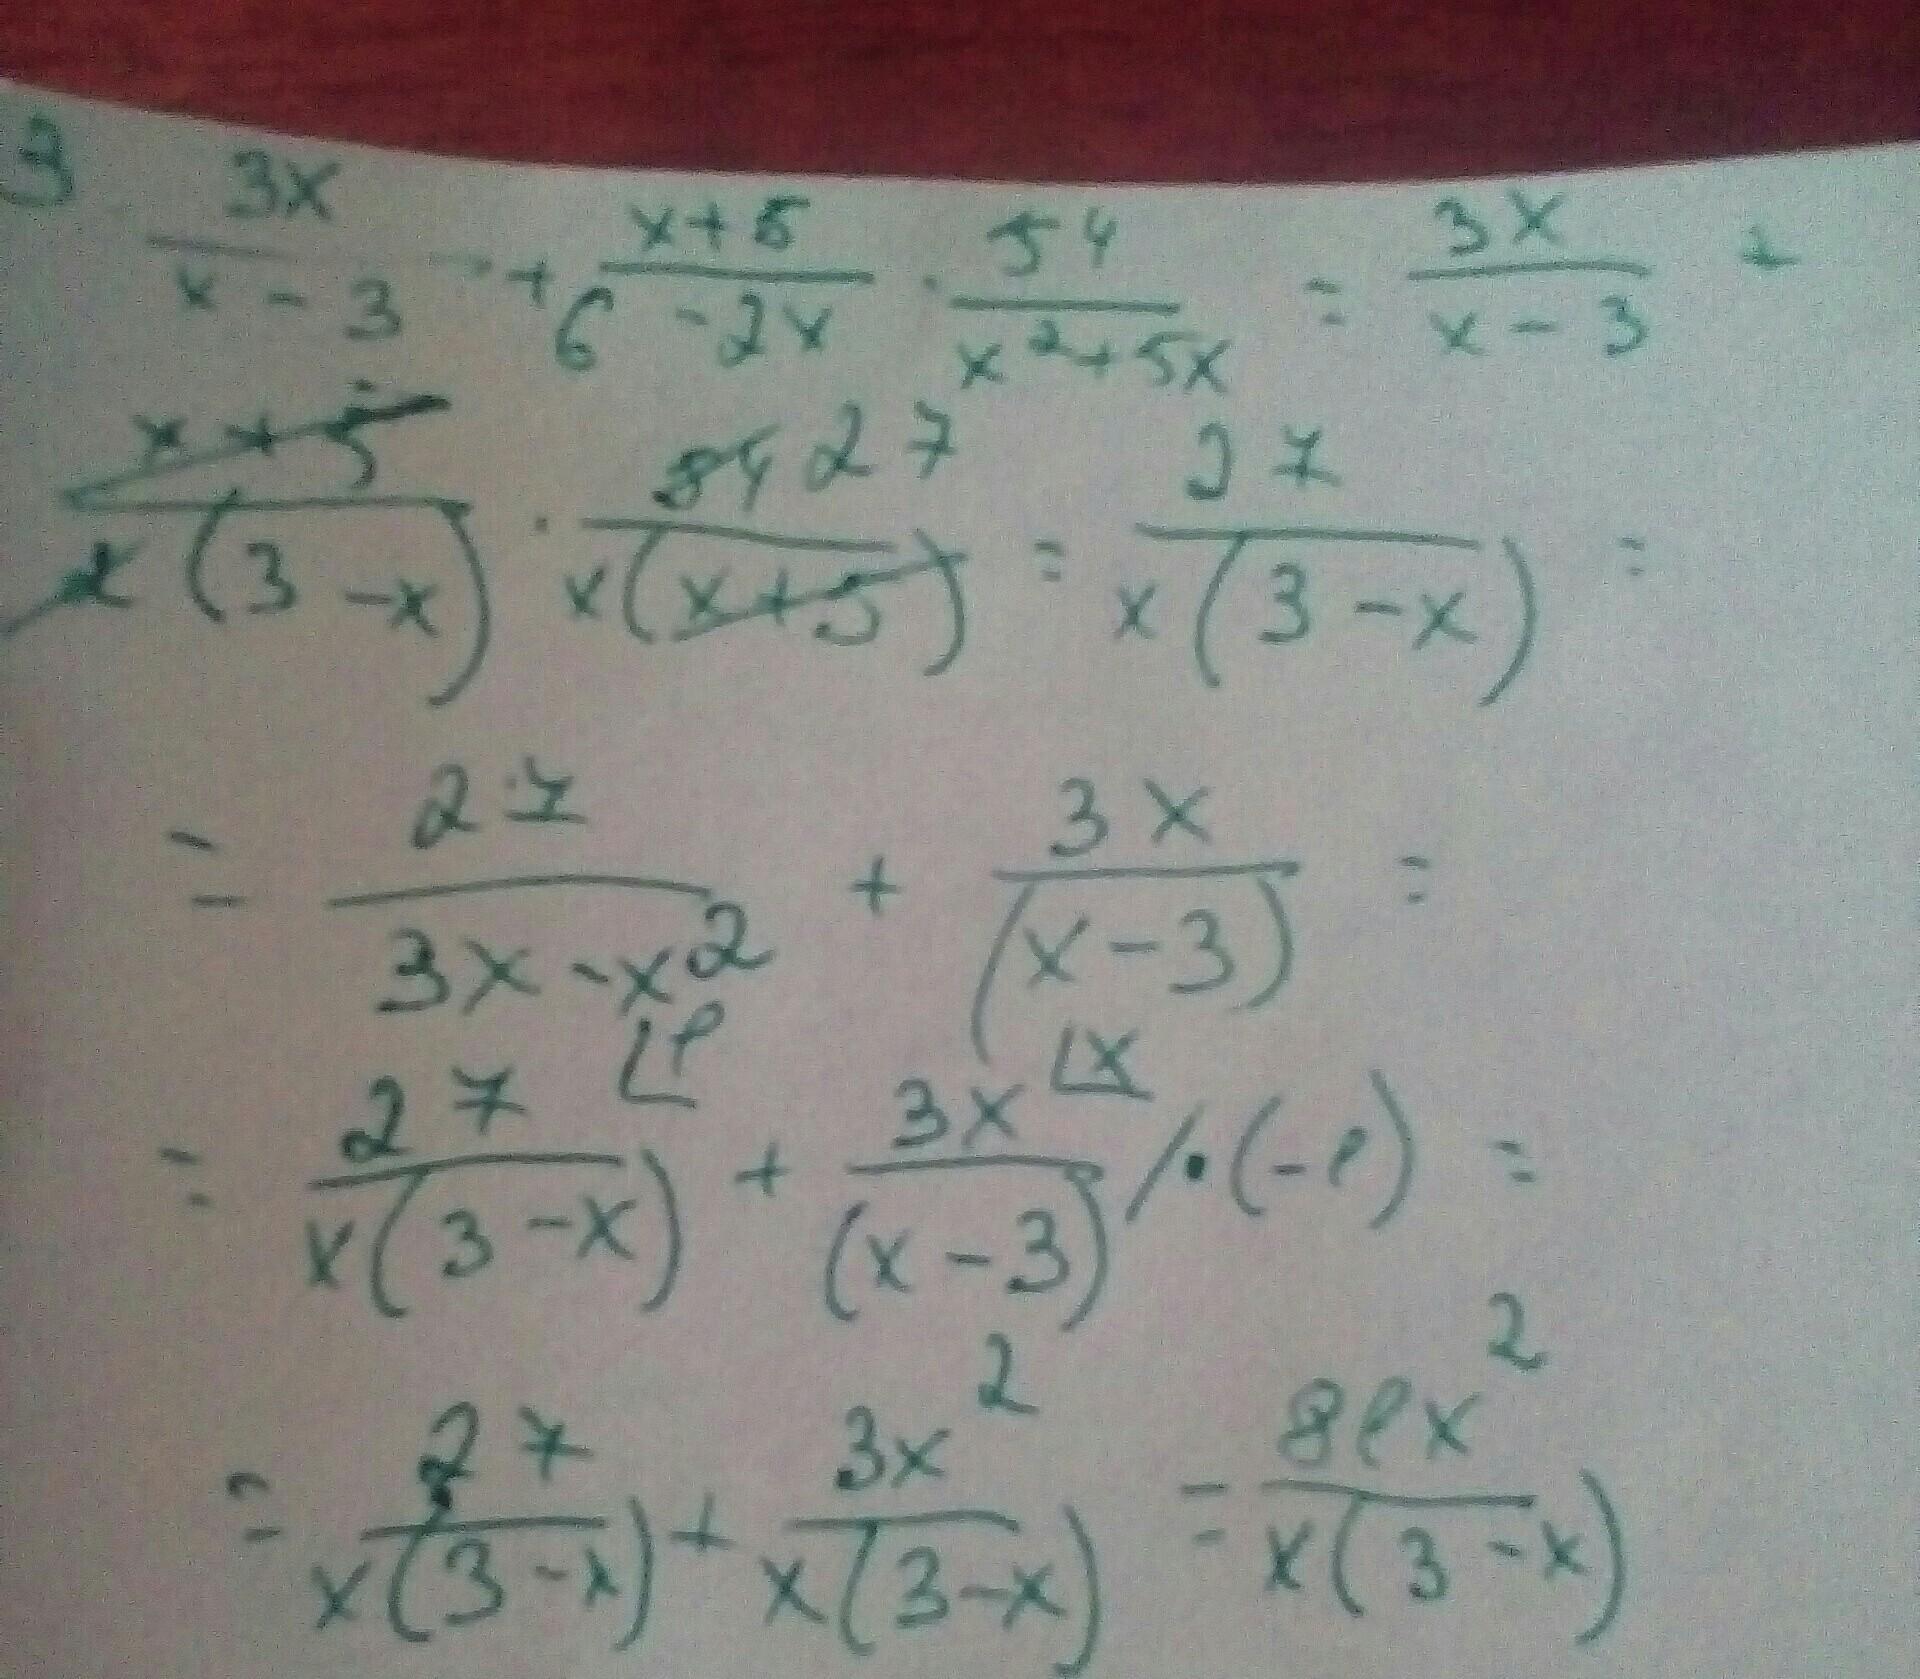 3 3x/(x - 3) + (x+5)/(6 - 2x) · 54/(x²+5x) = 3x/(x - 3) +
(x+5)/(2(3 - x)) · 54 27/(x(x+5)) = 27/(x(3 - x)) =
= 27/(3x - x²) + 3x/(x - 3) =
= 27 ⌊1/(x(3 - x)) + 3x ⌊x/(x - 3) / · (-1) =
= 27/(x(3 - x)) + 3x²/(x(3 - x)) = 81x²/(x(3 - x))